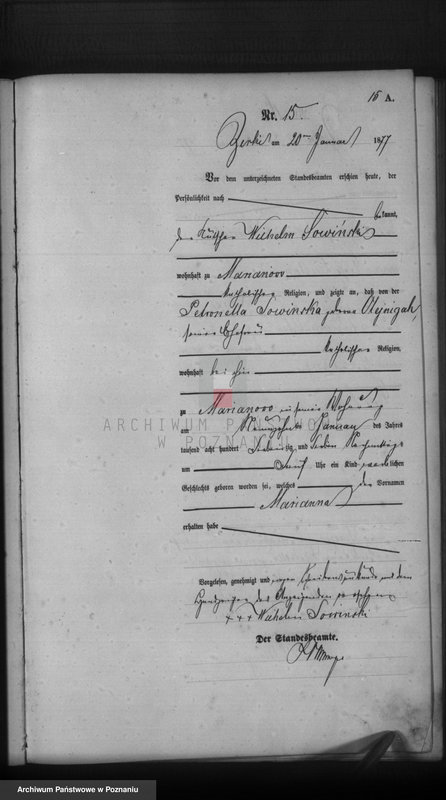 15 A.
Nr. 15.
Zerkow am 20ten Januar 1877
Vor dem unterzeichneten Standesbeamten erschien heute, der
Persönlichkeit nach
bekannt,
der Wilhelm Sowiński
wohnhaft zu Marianowo
katholischer Religion, und zeigte an, daß von der
Petronella Sowinska geborne Olejnizak,
seiner Ehefrau
katholischer Religion,
wohnhaft bei ihm
zu Marianowo in seiner Wohnung
am Neunzehnten Januar des Jahres
tausend acht hundert siebenzig und sieben Nachmittags
um fünf Uhr ein Kind weiblichen
Geschlechts geboren worden sei, welches den Vornamen
Marianna
erhalten habe
Vorgelesen, genehmigt und wegen Schreibensunkunde mit dem
Handzeichen des Anzeigenden versehen
+++ Wilhelm Sowinski
Der Standesbeamte.
ARCHIWUM PAŃSTWOWE
W POZNANIU
Archiwum Państwowe w Poznaniu